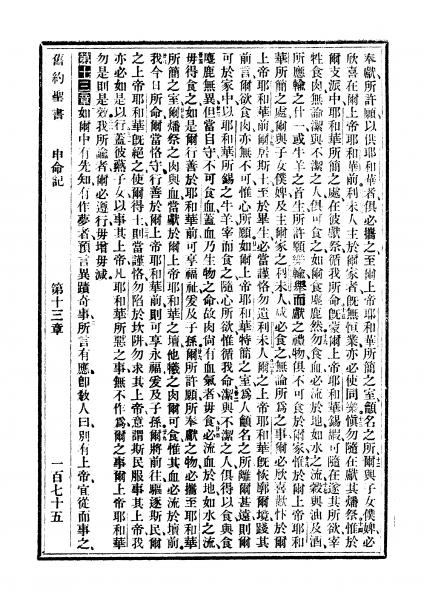 奉獻所許願以供耶和華者俱必攜之至爾上帝耶和華所簡之室顯名之所爾與子女僕婢必
欣喜在爾上帝耶和華前利未人主於爾家者旣無恒業亦必使同樂愼勿隨在獻其燔祭惟於
爾支派中耶和華所簡之處在彼獻祭循我所命旣蒙爾上帝耶和華錫嘏可隨在遂其所欲宰
牲食肉無論潔與不潔之人俱可食之如爾食麞鹿然勿食血必流於地如水之流穀與油及酒
所應輸之什一或牛羊之首生所許願樂輸舉而獻之禮物俱不可食於家惟於爾上帝耶和
華所簡之處爾與子女僕婢及主爾家之利未人咸必食之無論所爲之事爾必欣喜歡忭於爾
上帝耶和華前爾居斯土至於畢生必當謹恪勿遺利未人爾之上帝耶和華旣恢廓爾境踐其
前言爾欲食肉亦無不可惟心所願如爾上帝耶和華特簡之室爲人顯名之所離爾甚遠則爾
可於家中以耶和華所錫之牛羊宰而食之隨心所欲惟循我命潔與不潔之人俱得以食與食
麞鹿無異但當自守不可食血蓋血乃生物之命故肉尚有血氣者毋食必流血於地如水之流
毋得食之如是爾行善於耶和華前可享福祉爰及子孫爾所許願所奉獻之物必攜至耶和華
所簡之室爾燔祭之肉與血當獻於爾上帝耶和華之壇他犧之肉爾可食惟其血必流於壇前
我今日所命爾當恪守行善於爾上帝耶和華前則可享永福爰及子孫爾將前往驅逐斯民爾
之上帝耶和華旣絕之使爾得土則當謹恪勿陷於坎阱勿求其上帝意謂斯民服事其上帝我
亦必如是以行蓋彼爇子女以事其上帝凡耶和華所惡之事無不作爲爾之事爾上帝耶和華
勿是則是效我所諭者爾必遵行毋增毋減
第十三章如爾中有先知有作夢者預言異蹟奇事所言有應卽敎人曰別有上帝宜從而事之
舊約聖書 申命記 第十三章 一百七十五